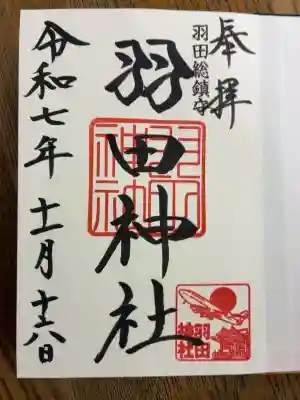 奉拝
羽田総鎮守
羽田神社
羽田神社
令和七年 十一月 十六日
羽田
神社